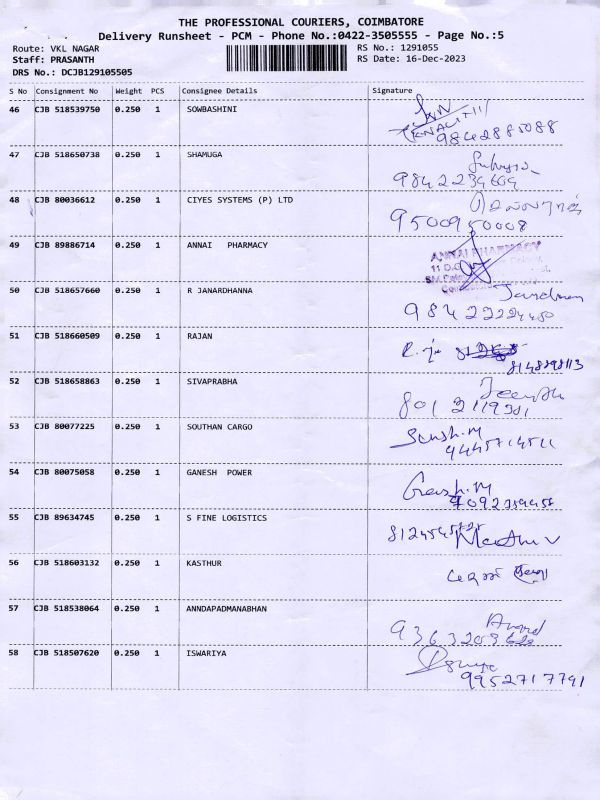 THE PROFESSIONAL COURIERS, COIMBATORE
Delivery Runsheet - PCM - Phone No.:0422-3505555 - Page No.:5
Route: VKL NAGAR
RS No.: 1291055
Staff: PRASANTH
RS Date: 16-Dec-2023
DRS No.: DCJB129105505
S No Consignment No Weight PCS Consignee Details Signature
46 CJB 518539750 0.250 1 SOWBASHINI
9842885088
47 CJB 518650738 0.250 1 SHAMUGA
48 CJB 80036612 0.250 1 CIYES SYSTEMS (P) LTD
9500950008
49 CJB 89886714 0.250 1 ANNAI PHARMACY
ANNAI PHARMACY
50 CJB 518657660 0.250 1 R JANARDHANNA
51 CJB 518660509 0.250 1 RAJAN
52 CJB 518658863 0.250 1 SIVAPRABHA
53 CJB 80077225 0.250 1 SOUTHAN CARGO
54 CJB 80075058 0.250 1 GANESH POWER
55 CJB 89634745 0.250 1 S FINE LOGISTICS
56 CJB 518603132 0.250 1 KASTHUR
57 CJB 518538064 0.250 1 ANNDAPADMANABHAN
Anand
58 CJB 518507620 0.250 1 ISWARIYA
9952717791